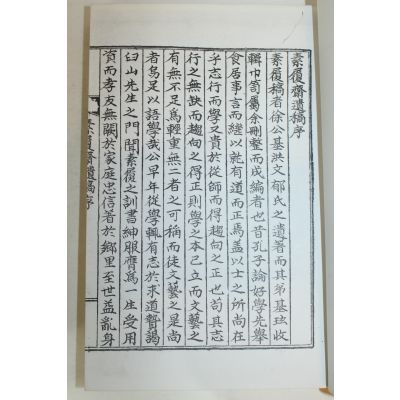 素履齋遺稿序
素履稿者徐公基洪文郁氏之遺著而其弟基珐收
輯巾笥屬余刪整而成編者也昔孔子論好學先擧
食居事言而繼以就有道而正焉盖以士之所尚在
乎志行而學又貴於從師而得趨向之正也苟其志
行之無缺而趨向之得正則學之本已立而文藝之
有無不足爲輕重無二者之可稱而徒文藝之是尚
者烏足以語學哉公早年從學輒有志於求道贄謁
臼山先生之門聞素履之訓書紳服膺爲一生受用
資而孝友無闕於家庭忠信著於鄕里至世益亂身
素履齋遺稿序